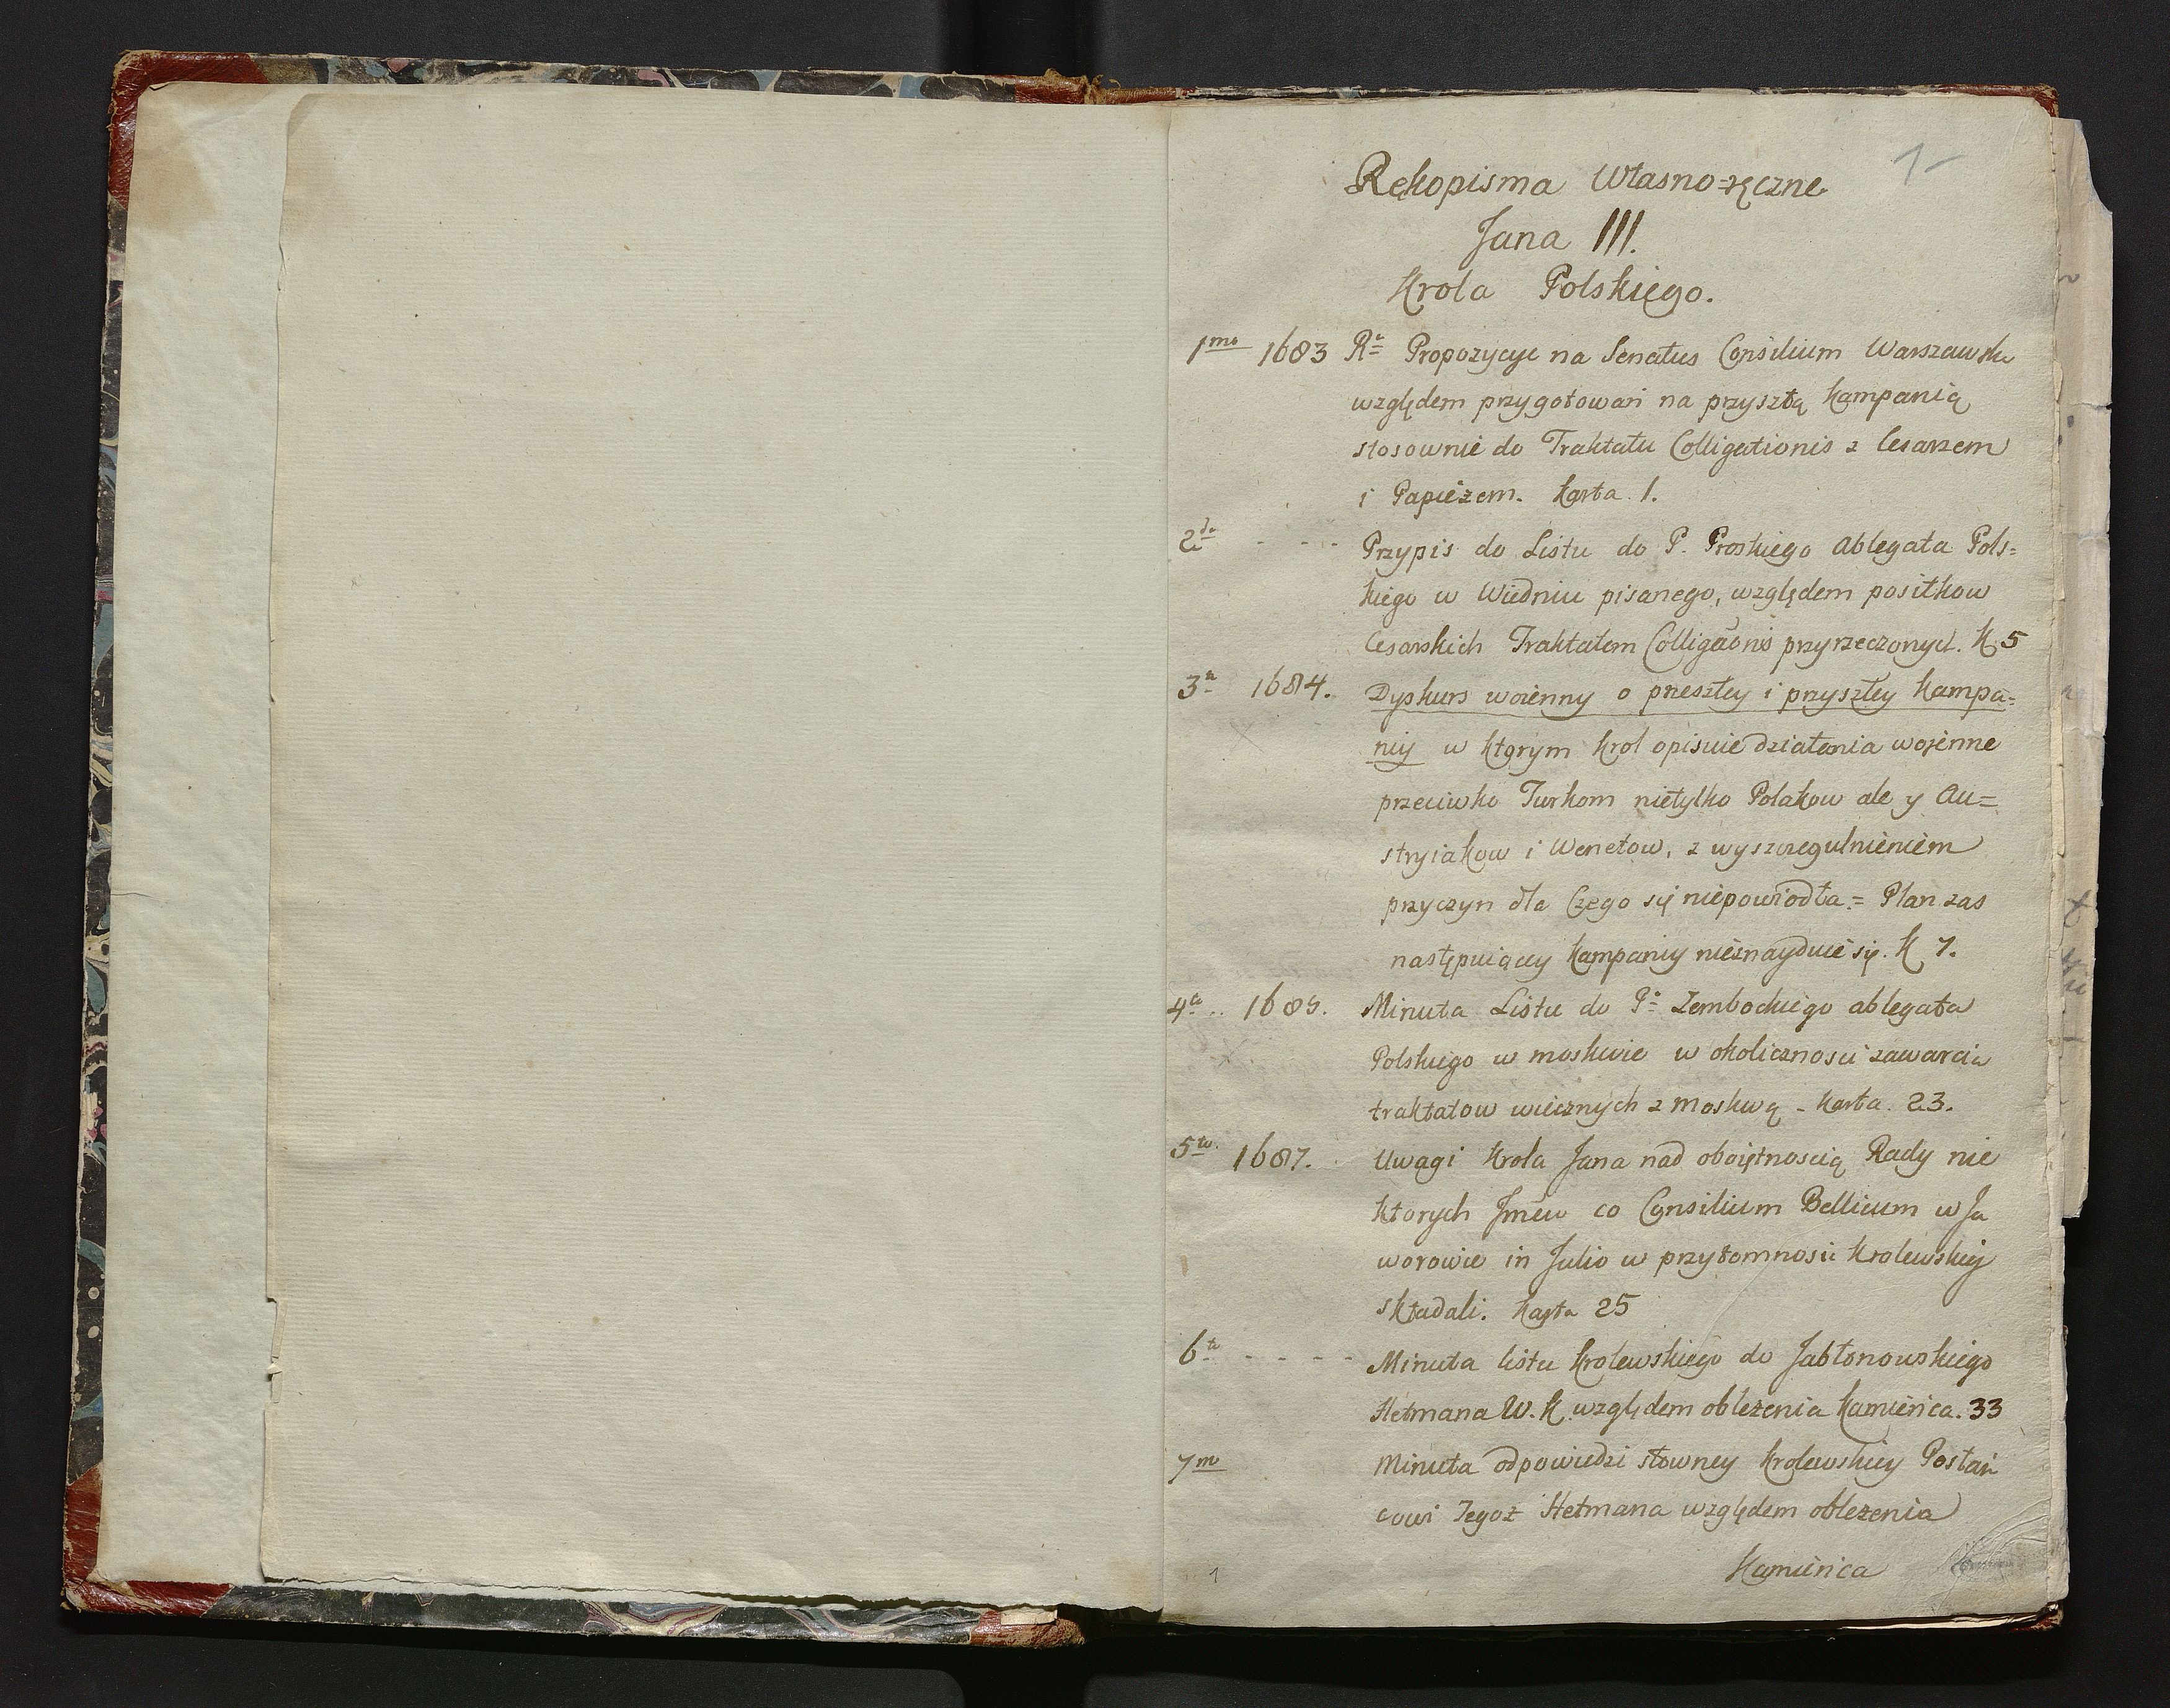 1
Rękopisma Własno=ręczne
Jana III.
Krola Polskiego.
1mo 1683 Ru Propozycye na Senatus Consilium Warszawsk
względem przygotowań na przyszłą kampanią
stosownie do Traktatu Colligationis z Cesarzem
i Papieżem. karta 1.
2do - - - Przypis do Listu do P. Proskiego ablegata Pols=
kiego w Wiedniu pisanego, względem positkow
Cesarskich Traktatem Colligaõnis przyrzeczonych. K 5
3a 1684. Dyskurs woienny o przeszłey i przyszłey kampa=
niy w ktorym Krol opisuie działania wojenne
przeciwko Turkom nietylko Polakow ale y Au=
stryiakow i Wenetow, z wyszczegulnieniem
przyczyn dla Czego się niepowiodła = Plan zas
następuiącey kampaniy nieznayduie się. K 7.
4a .. 1685. Minuta Listu do Po Zembockiego ablegata
Polskiego w moskwie w okolicznosci zawarcia
traktatow wiecznych z Moskwą - karta 23.
5to 1687. Uwagi Krola Jana nad oboiętnoscią Rady nie
ktorych Jmćw co Consilium Bellicum w Ja
worowie in Julio w przytomnosci Krolewskiej
składali. karta 25
6to - - - - Minuta listu krolewskiego do Jabłonowskiego
Hetmana W. K. względem obleżenia Kamieńca. 33
7m Minuta odpowiedzi słowney krolewskiey Posłań
cowi Tegoż Hetmana względem obleżenia
Kamieńca
1